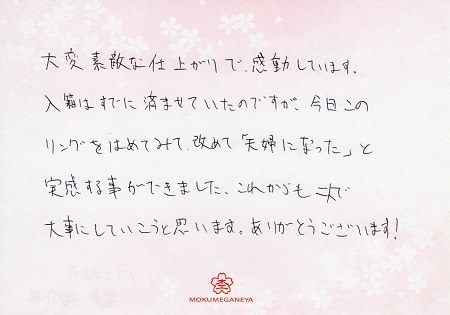 大変素敵な仕上がりで、感動しています。
入籍はすでに済ませていたのですが、今日この
リングをはめてみて、改めて「夫婦になった」と
実感する事ができました。これからも二人で
大事にしていこうと思います。ありがとうございます!
MOKUMEGANEYA